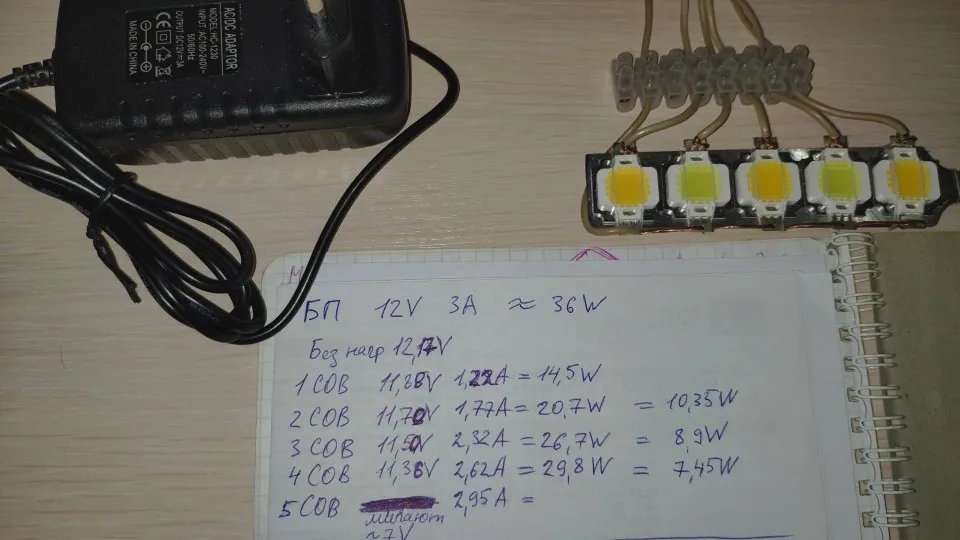 AC/DC ADAPTOR
MODEL:HC-1230
INPUT: AC100-240V~
50/60Hz
OUTPUT:DC12V⎓3A
CE
MADE IN CHINA
БП 12V 3A ≈ 36W
Без нагр 12,17V
1 COB 11,88V 1,22A = 14,5W
2 COB 11,70V 1,77A = 20,7W = 10,35W
3 COB 11,50V 2,32A = 26,7W = 8,9W
4 COB 11,38V 2,62A = 29,8W = 7,45W
5 COB 2,95A =
мигают
~7V